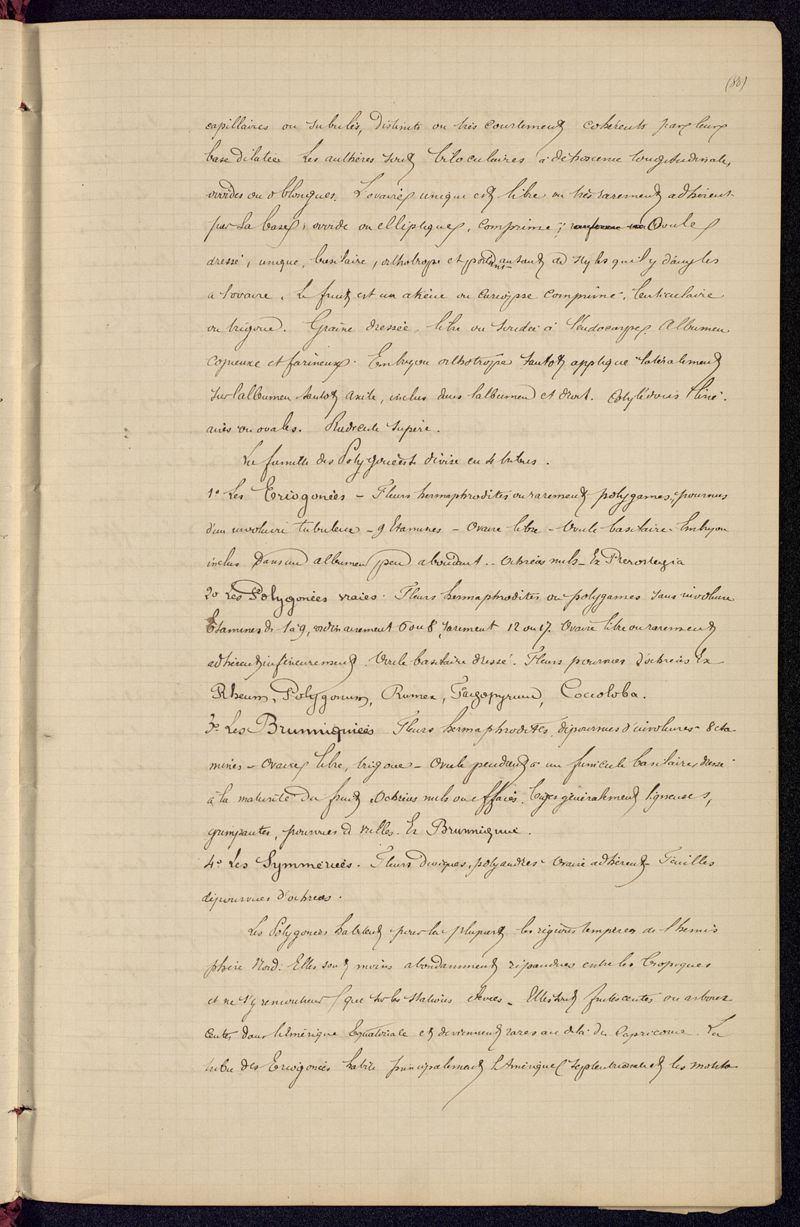 (80)
capillaires ou subulés, distincts ou très courtement cohérents par leur
base dilatée Les anthères sont biloculaires à déhiscence longitudinale,
ovoïdes ou oblongues. L'ovaire unique est libre ou très rarement adhérent
par la base, ovoïde ou elliptique, comprimé; Ovule
dressé, unique, basilaire, orthotrope et portant autant de styles qu'il y d'angles
a l'ovaire. Le fruit est un akène ou cariopse comprimé, lenticulaire
ou trigone. Graine dressée, libre ou soudée à l'endocarpe. Albumen
copieux et farineux. Embryon orthotrope tantôt appliqué latéralement
sur l'albumen tantôt axile, inclus dans l'albumen et droit. Cotylédons liné-
aires ou ovales. Radicule supère.
La famille des Polygonées se divise en 4 tribus.
1º Les Eriogonées - Fleurs hermaphrodites ou rarement polygames, pourvues
d'un involucre tubuleux - 9 Etamines - Ovaire libre - Ovule basilaire - Embryon
inclus dans un albumen peu abondant - Ochréas nuls - Ex Pterostegia
2º Les Polygonées vraies. Fleurs hermaphrodites ou polygames sans involucre
Etamines de 1 à 9, ordinairement 6 ou 8, rarement 12 ou 17. Ovaire libre ou rarement
adhérent inférieurement. Ovule basilaire dressé. Fleurs pourvues d'ochréas Ex
Rheum, Polygonum, Rumex, Fagopyrum, Coccoloba.
3º Les Brunnichiées Fleurs hermaphrodites, dépourvues d'involucres - 8 éta-
mines - Ovaire libre, trigone - Ovule pendant à un funicule basilaire, dressé
à la maturité du fruit Ochréas nuls ou effacés. Tiges généralement ligneuses,
grimpantes, pourvues de vrilles. Ex
4º Les Symmeriées. Fleurs dioïques, polyandres - Ovaire adhérent - Feuilles
dépourvues d'ochréas.
Les Polygonées habitent pour la plupart les régions tempérées de l'hémis
phère Nord. Elles sont moins abondamment répandues entre les Tropiques
et ne s'y rencontrent que sur les stations élevées - Elles sont frutescentes ou arbores-
centes dans l'Amérique Equatoriale et deviennent rares au delà du Capricorne. La
tribu des Eriogonées habite principalement l'Amérique septentrionale et les